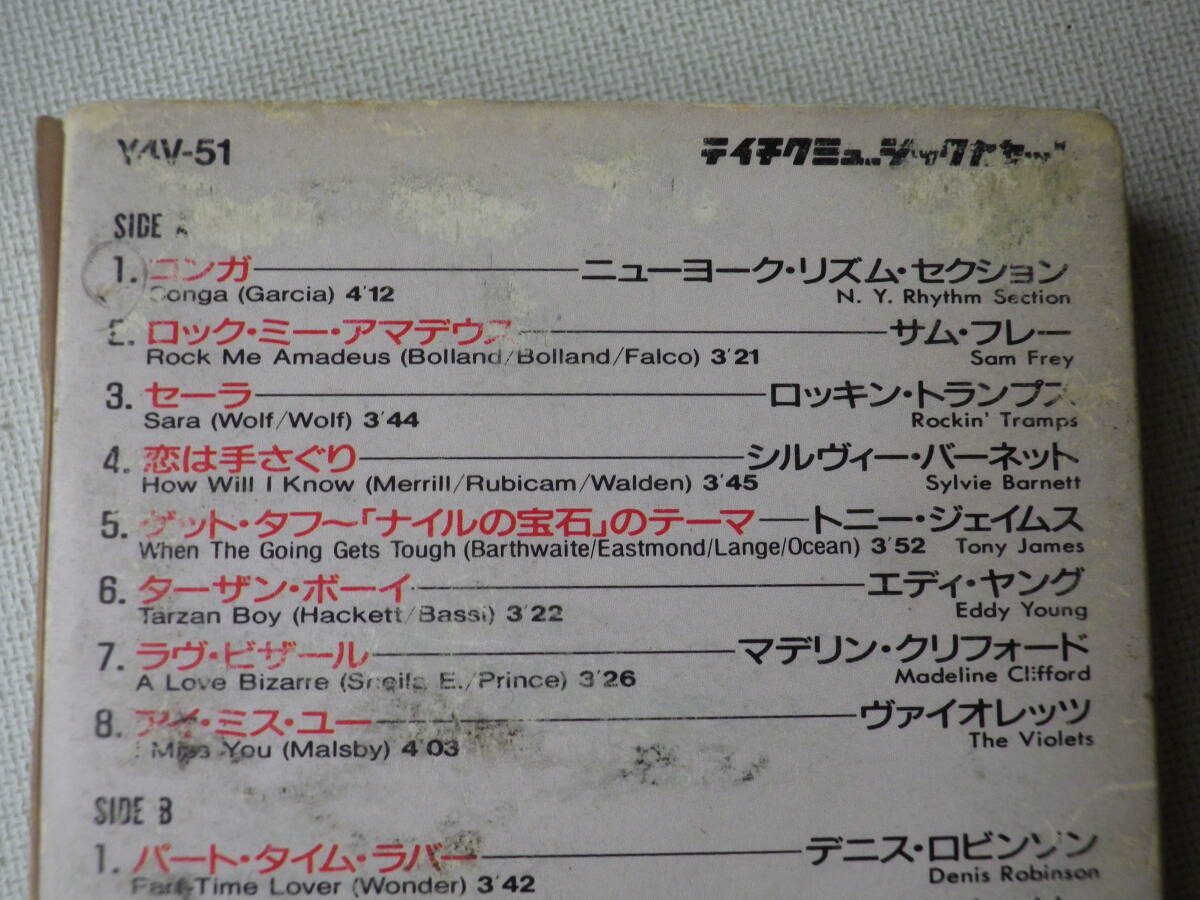 Y4V-51 テイチクミュージックカセット
SIDE A
1. コンガ ニューヨーク・リズム・セクション
Conga (Garcia) 4'12 N. Y. Rhythm Section
2. ロック・ミー・アマデウス サム・フレー
Rock Me Amadeus (Bolland/Bolland/Falco) 3'21 Sam Frey
3. セーラ ロッキン・トランプス
Sara (Wolf/Wolf) 3'44 Rockin' Tramps
4. 恋は手さぐり シルヴィー・バーネット
How Will I Know (Merrill/Rubicam/Walden) 3'45 Sylvie Barnett
5. ゲット・タフ〜「ナイルの宝石」のテーマ トニー・ジェイムス
When The Going Gets Tough (Barthwaite/Eastmond/Lange/Ocean) 3'52 Tony James
6. ターザン・ボーイ エディ・ヤング
Tarzan Boy (Hackett/Bassi) 3'22 Eddy Young
7. ラヴ・ビザール マデリン・クリフォード
A Love Bizarre (Sheila E./Prince) 3'26 Madeline Clifford
8. アイ・ミス・ユー ヴァイオレッツ
I Miss You (Malsby) 4'03 The Violets
SIDE B
1. パート・タイム・ラバー デニス・ロビンソン
Part-Time Lover (Wonder) 3'42 Denis Robinson